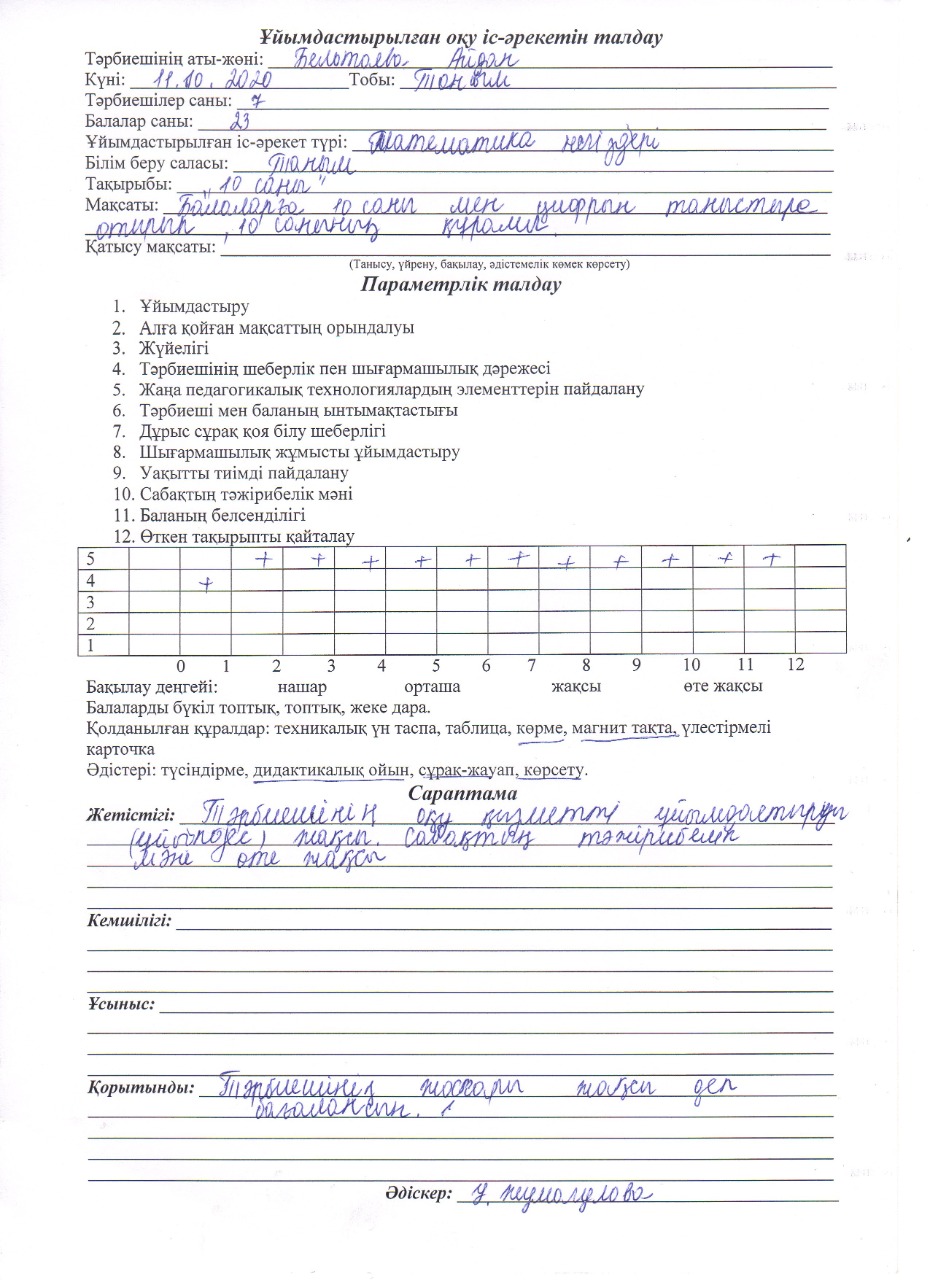 Ұйымдастырылған оқу іс-әрекетін талдау
Тәрбиешінің аты-жөні: Бельтаева Айдан
Күні: 11.10.2020 Тобы:
Тәрбиешілер саны: 7
Балалар саны: 23
Ұйымдастырылған іс-әрекет түрі: Математика негіздері
Білім беру саласы: Таным
Тақырыбы: „10 саны"
Мақсаты: Балаларға 10 саны мен цифрын таныстыра
отырып, 10 санының құрамы.
Қатысу мақсаты:
(Танысу, үйрену, бақылау, әдістемелік көмек көрсету)
Параметрлік талдау
1. Ұйымдастыру
2. Алға қойған мақсаттың орындалуы
3. Жүйелігі
4. Тәрбиешінің шеберлік пен шығармашылық дәрежесі
5. Жаңа педагогикалық технологиялардың элементтерін пайдалану
6. Тәрбиеші мен баланың ынтымақтастығы
7. Дұрыс сұрақ қоя білу шеберлігі
8. Шығармашылық жұмысты ұйымдастыру
9. Уақытты тиімді пайдалану
10. Сабақтың тәжірибелік мәні
11. Баланың белсенділігі
12. Өткен тақырыпты қайталау
5 + + + + + + + + + + +
4 +
3
2
1
0 1 2 3 4 5 6 7 8 9 10 11 12
Бақылау деңгейі: нашар орташа жақсы өте жақсы
Балаларды бүкіл топтық, топтық, жеке дара.
Қолданылған құралдар: техникалық үн таспа, таблица, көрме, магнит тақта, үлестірмелі
карточка
Әдістері: түсіндірме, дидактикалық ойын, сұрақ-жауап, көрсету.
Сараптама
Жетістігі: Тәрбиешінің оқу қызметті ұйымдастыруы
жақсы. Сабақтың тәжірибелік
мәні өте жақсы
Кемшілігі:
Ұсыныс:
Қорытынды: Тәрбиешінің жоспары жақсы деп
бағалансын.
Әдіскер: У. Жумагулова